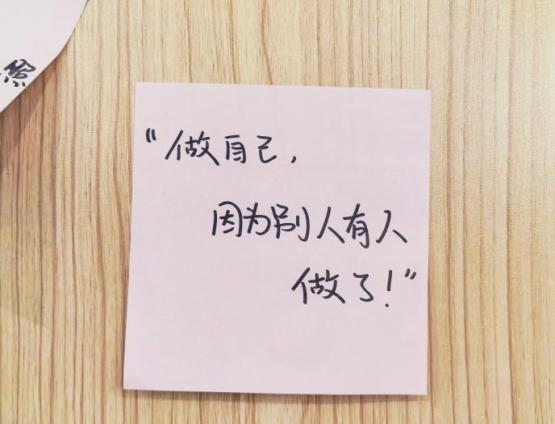 “做自己，
因为别人有人
做了！”